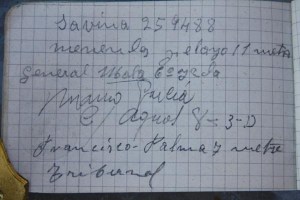 Savina 259488
menendez pelayo 11 metro
general Mola 6º izda
Mario
C/ Agnol 8-3-D
Francisco Palma 7 metro
Tribunal